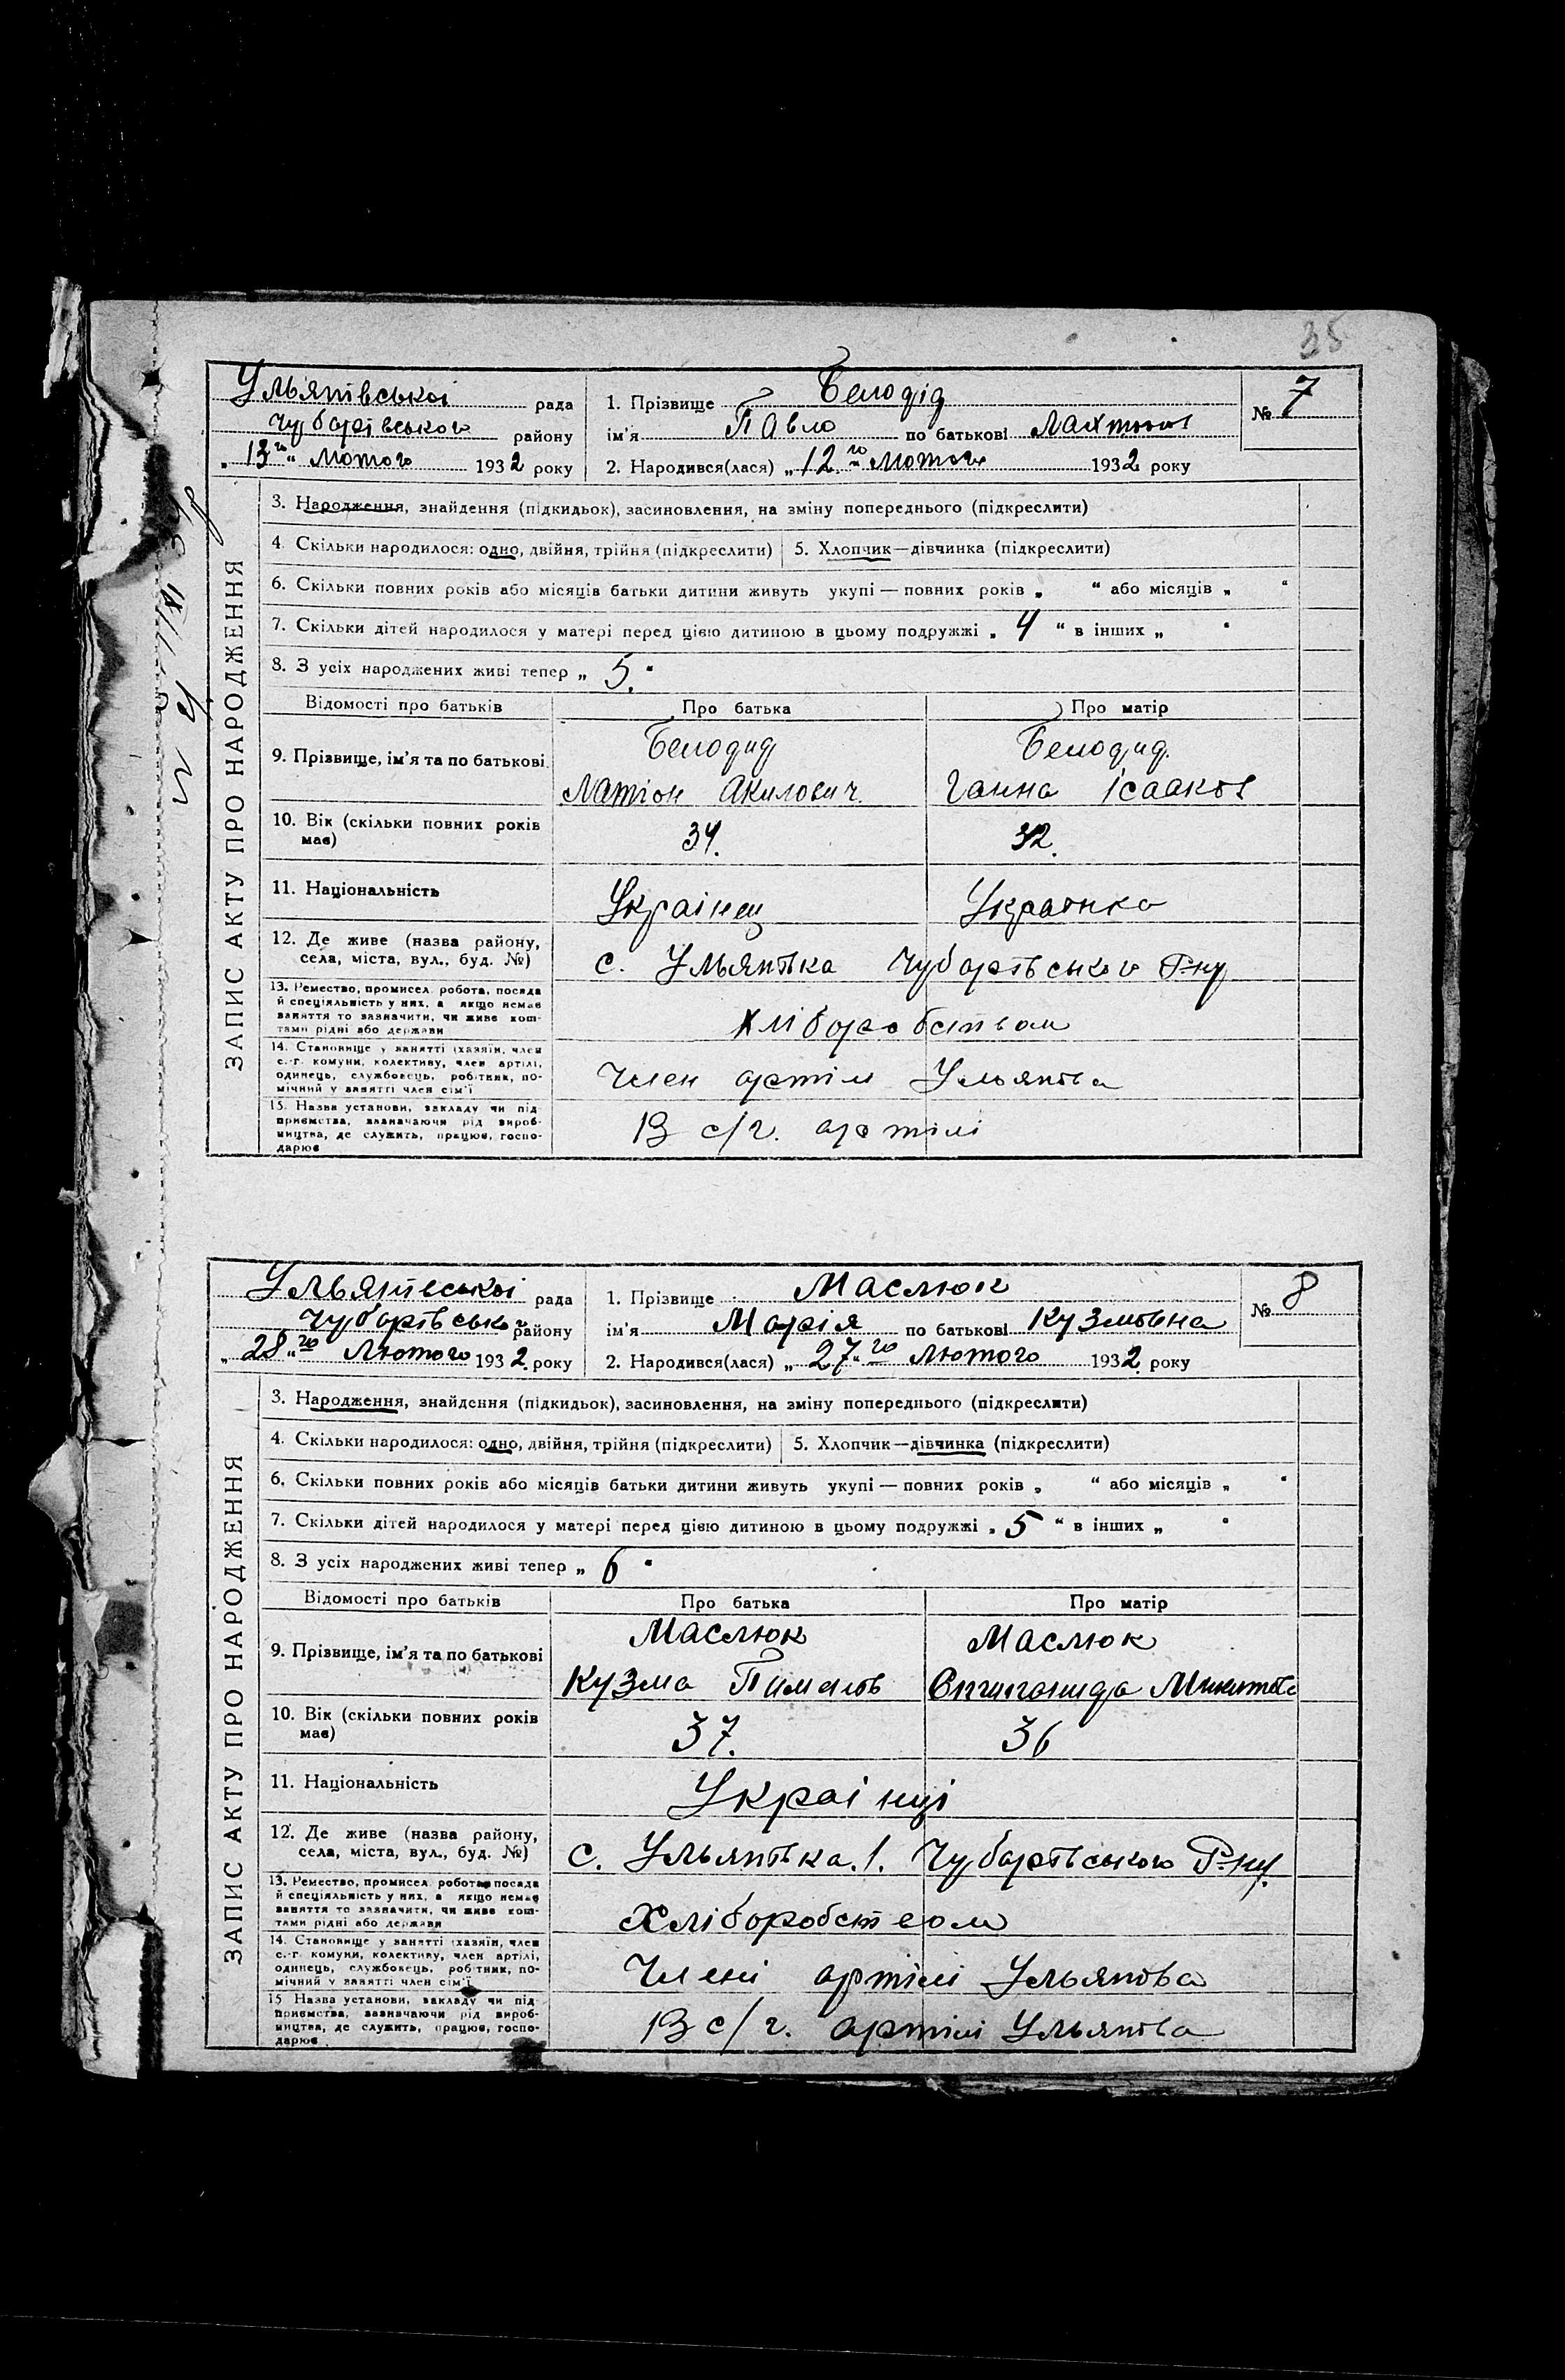 35
Ульянівської рада
Чубарівського району
„ 13го “ лютого 1932 року
1. Прізвище Белодід
ім'я Павло по батькові
2. Народився(лася) „ 12го “ лютого 1932 року
№ 7
ЗАПИС АКТУ ПРО НАРОДЖЕННЯ
3. Народження, знайдення (підкидьок), засиновлення, на зміну попереднього (підкреслити)
4. Скільки народилося: одно, двійня, трійня (підкреслити) 5. Хлопчик—дівчинка (підкреслити)
6. Скільки повних років або місяців батьки дитини живуть укупі — повних років „ “ або місяців „ “
7. Скільки дітей народилося у матері перед цією дитиною в цьому подружжі „ 4 “ в інших „ “
8. З усіх народжених живі тепер „ 5. “
Відомості про батьків Про батька Про матір
9. Прізвище, ім'я та по батькові Белодид Белодид.
Акилович. Ганна Ісааков
10. Вік (скільки повних років має) 34. 32.
11. Національність Українец Українка
12. Де живе (назва району, села, міста, вул., буд. №) с. Ульянівка Чубарівського Р-ну
13. Ремество, промисел, робота, посада й спеціяльність у них, а якщо немає заняття то зазначити, чи живе коштами рідні або держави Хліборобством
14. Становище у занятті (хазяїн, член с.-г. комуни, колективу, член артілі, одинець, службовець, робітник, помічний у занятті член сім'ї Член артіли Ульянова
15. Назва установи, закладу чи підприємства, зазначаючи рід виробництва, де служить, працює, господарює В с/г. артілі
Ульянівської рада
Чубарівсько району
„ 28 “го Лютого 1932. року
1. Прізвище Маслюк
ім'я Марія по батькові Кузмівна
2. Народився(лася) „ 27 “го Лютого 1932. року
№ 8
ЗАПИС АКТУ ПРО НАРОДЖЕННЯ
3. Народження, знайдення (підкидьок), засиновлення, на зміну попереднього (підкреслити)
4. Скільки народилося: одно, двійня, трійня (підкреслити) 5. Хлопчик—дівчинка (підкреслити)
6. Скільки повних років або місяців батьки дитини живуть укупі — повних років „ “ або місяців „ “
7. Скільки дітей народилося у матері перед цією дитиною в цьому подружжі „ 5 “ в інших „ “
8. З усіх народжених живі тепер „ 6 “
Відомості про батьків Про батька Про матір
9. Прізвище, ім'я та по батькові Маслюк Маслюк
Кузма
10. Вік (скільки повних років має) 37. 36
11. Національність Українці
12. Де живе (назва району, села, міста, вул., буд. №) с. Ульянівка.1. Чубарівського Р-ну.
13. Ремество, промисел, робота, посада й спеціяльність у них, а якщо немає заняття то зазначити, чи живе коштами рідні або держави Хліборобством
14. Становище у занятті (хазяїн, член с.-г. комуни, колективу, член артілі, одинець, службовець, робітник, помічний у занятті член сім'ї Члені артілі Ульянова
15. Назва установи, закладу чи підприємства, зазначаючи рід виробництва, де служить, працює, господарює В с/г. артілі Ульянова